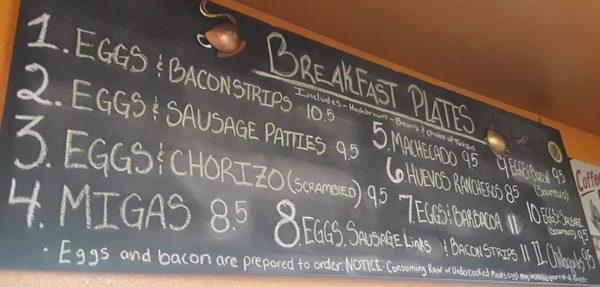 BREAKFAST PLATES
Includes - Hashbrowns - Beans & Choice of Tortillas
1. EGGS & BACON STRIPS 10.5
2. EGGS & SAUSAGE PATTIES 9.5
3. EGGS & CHORIZO (SCRAMBLED) 9.5
4. MIGAS 8.5
5. MACHECADO 9.5
6 HUEVOS RANCHEROS 8.5
7 EGGS & BARBACOA 11
8 EGGS, SAUSAGE LINKS & BACON STRIPS 11
9 EGGS & BACON 9.5
(SCRAMBLED)
10 EGGS & SAUSAGE 9.5
SCRAMBLED
11. Chilaquiles 9.5
• Eggs and bacon are prepared to order. NOTICE: Consuming Raw or Undercooked Meats, Eggs may increase your risk of
Coffee